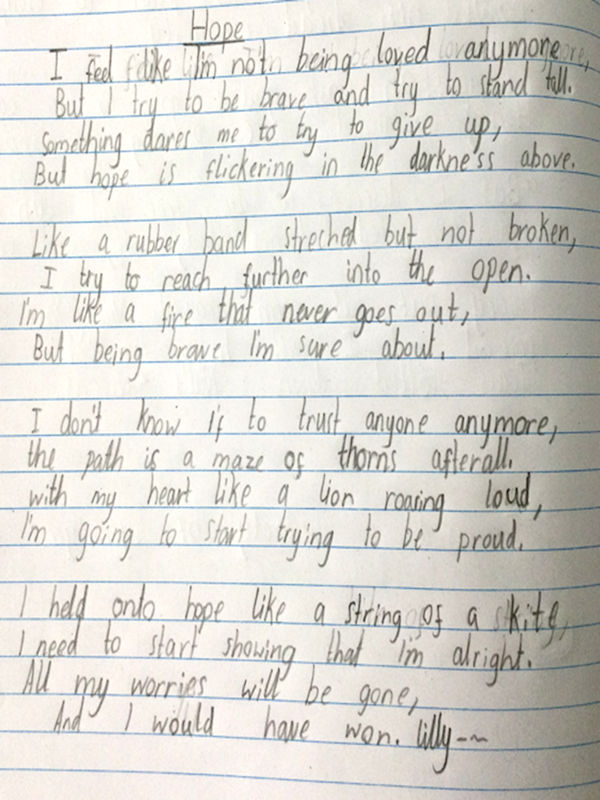 Hope
I feel like I'm not being loved anymore,
But I try to be brave and try to stand tall.
Something dares me to try to give up,
But hope is flickering in the darkness above.
Like a rubber band streched but not broken,
I try to reach further into the open.
I'm like a fire that never goes out,
But being brave I'm sure about.
I don't know if to trust anyone anymore,
the path is a maze of thorns afterall.
with my heart like a lion roaring loud,
I'm going to start trying to be proud.
I held onto hope like a string of a kite,
I need to start showing that I'm alright.
All my worries will be gone,
And I would have won. lilly~~